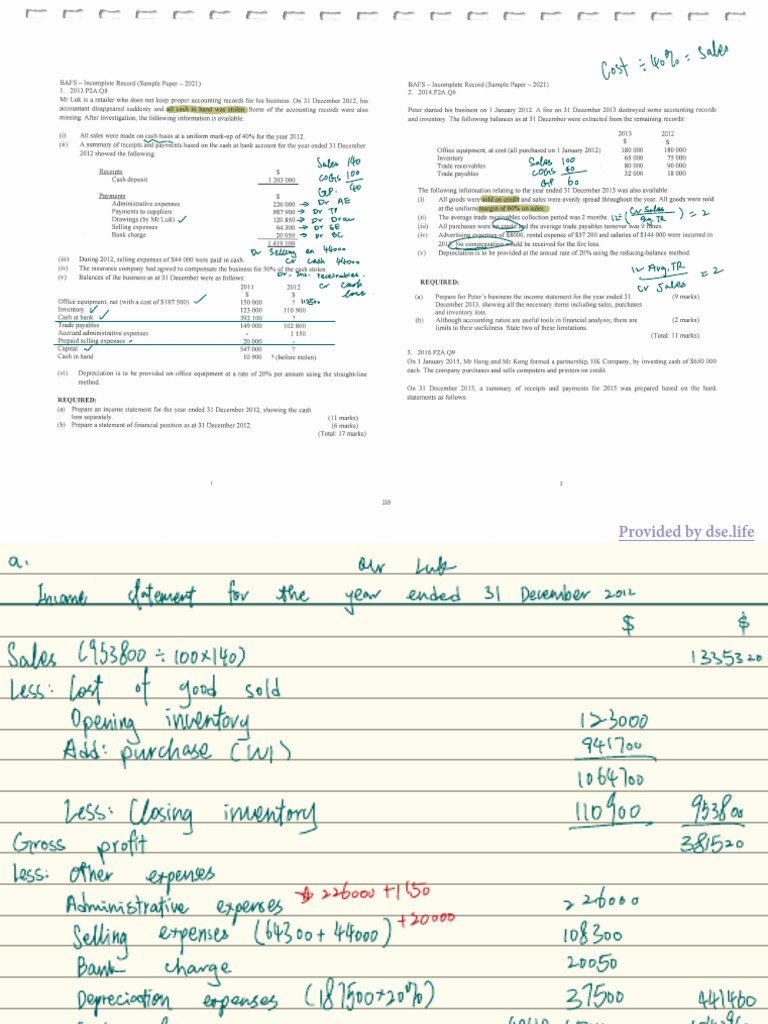 Cost ÷ 40% = Sales
BAFS – Incomplete Record (Sample Paper – 2021)
1. 2013.P2A.Q5
Mr Luk is a retailer who does not keep proper accounting records for his business. On 31 December 2012, his
accountant disappeared suddenly and all cash in hand was stolen. Some of the accounting records were also
missing. After investigation, the following information is available:
(i) All sales were made on cash basis at a uniform mark-up of 40% for the year 2012.
(ii) A summary of receipts and payments based on the cash at bank account for the year ended 31 December
2012 showed the following:
Sales 140
COGS 100
GP. 40
Receipts $
Cash deposit 1 203 000
Payments $
Administrative expenses 226 000 → Dr AE
Payments to suppliers 987 900 → Dr TP
Drawings (by Mr Luk) 120 850 → Dr Draw
Selling expenses 64 300 → Dr SE
Bank charge 20 050 → Dr BC
1 419 100
Dr Selling en 44000
Cr Cash 44000
(iii) During 2012, selling expenses of $44 000 were paid in cash.
(iv) The insurance company had agreed to compensate the business for 50% of the cash stolen.
Dr. Ins. receivables.
Cr cash
loss
(v) Balances of the business as at 31 December were as follows:
2011 2012
$ $
Office equipment, net (with a cost of $187 500) 150 000 ? 112500
Inventory 123 000 110 900
Cash at bank 392 100 ?
Trade payables 149 000 102 800
Accrued administrative expenses - 1 150
Prepaid selling expenses 20 000 -
Capital 547 000 ?
Cash in hand 10 900 ? (before stolen)
(vi) Depreciation is to be provided on office equipment at a rate of 20% per annum using the straight-line
method.
REQUIRED:
(a) Prepare an income statement for the year ended 31 December 2012, showing the cash
loss separately. (11 marks)
(b) Prepare a statement of financial position as at 31 December 2012. (6 marks)
(Total: 17 marks)
1
BAFS – Incomplete Record (Sample Paper – 2021)
2. 2014.P2A.Q6
Peter started his business on 1 January 2012. A fire on 31 December 2013 destroyed some accounting records
and inventory. The following balances as at 31 December were extracted from the remaining records:
2013 2012
$ $
Office equipment, at cost (all purchased on 1 January 2012) 180 000 180 000
Inventory 65 000 75 000
Trade receivables 80 000 90 000
Trade payables 32 000 18 000
Sales 100
COGS 40
GP 60
The following information relating to the year ended 31 December 2013 was also available:
(i) All goods were sold on credit and sales were evenly spread throughout the year. All goods were sold
at the uniform margin of 60% on sales.
(ii) The average trade receivables collection period was 2 months.
12÷(Cr Sales / Avg. TR) = 2
(iii) All purchases were on credit and the average trade payables turnover was 9 times.
(iv) Advertising expenses of $8000, rental expense of $37 200 and salaries of $144 000 were incurred in
2013. No compensation would be received for the fire loss.
(v) Depreciation is to be provided at the annual rate of 20% using the reducing-balance method.
12 Avg.TR / Cr Sales = 2
REQUIRED:
(a) Prepare for Peter's business the income statement for the year ended 31 (9 marks)
December 2013, showing all the necessary items including sales, purchases
and inventory loss.
(b) Although accounting ratios are useful tools in financial analysis, there are (2 marks)
limits to their usefulness. State two of these limitations.
(Total: 11 marks)
3. 2016.P2A.Q9
On 1 January 2015, Mr Heng and Mr Kong formed a partnership, HK Company, by investing cash of $650 000
each. The company purchases and sells computers and printers on credit.
On 31 December 2015, a summary of receipts and payments for 2015 was prepared based on the bank
statements as follows:
2
Provided by dse.life
a. Mr Luk
Income statement for the year ended 31 December 2012
$ $
Sales (953800 ÷ 100×140) 1335320
Less: Cost of good sold
Opening inventory 123000
Add: purchase (W1) 941700
1064700
Less: Closing inventory 110900 953800
Gross profit 381520
Less: Other expenses
Administrative expenses 226000+1150 226000
Selling expenses (64300 + 44000) +20000 108300
Bank charge 20050
Depreciation expenses (187500×20%) 37500 441460